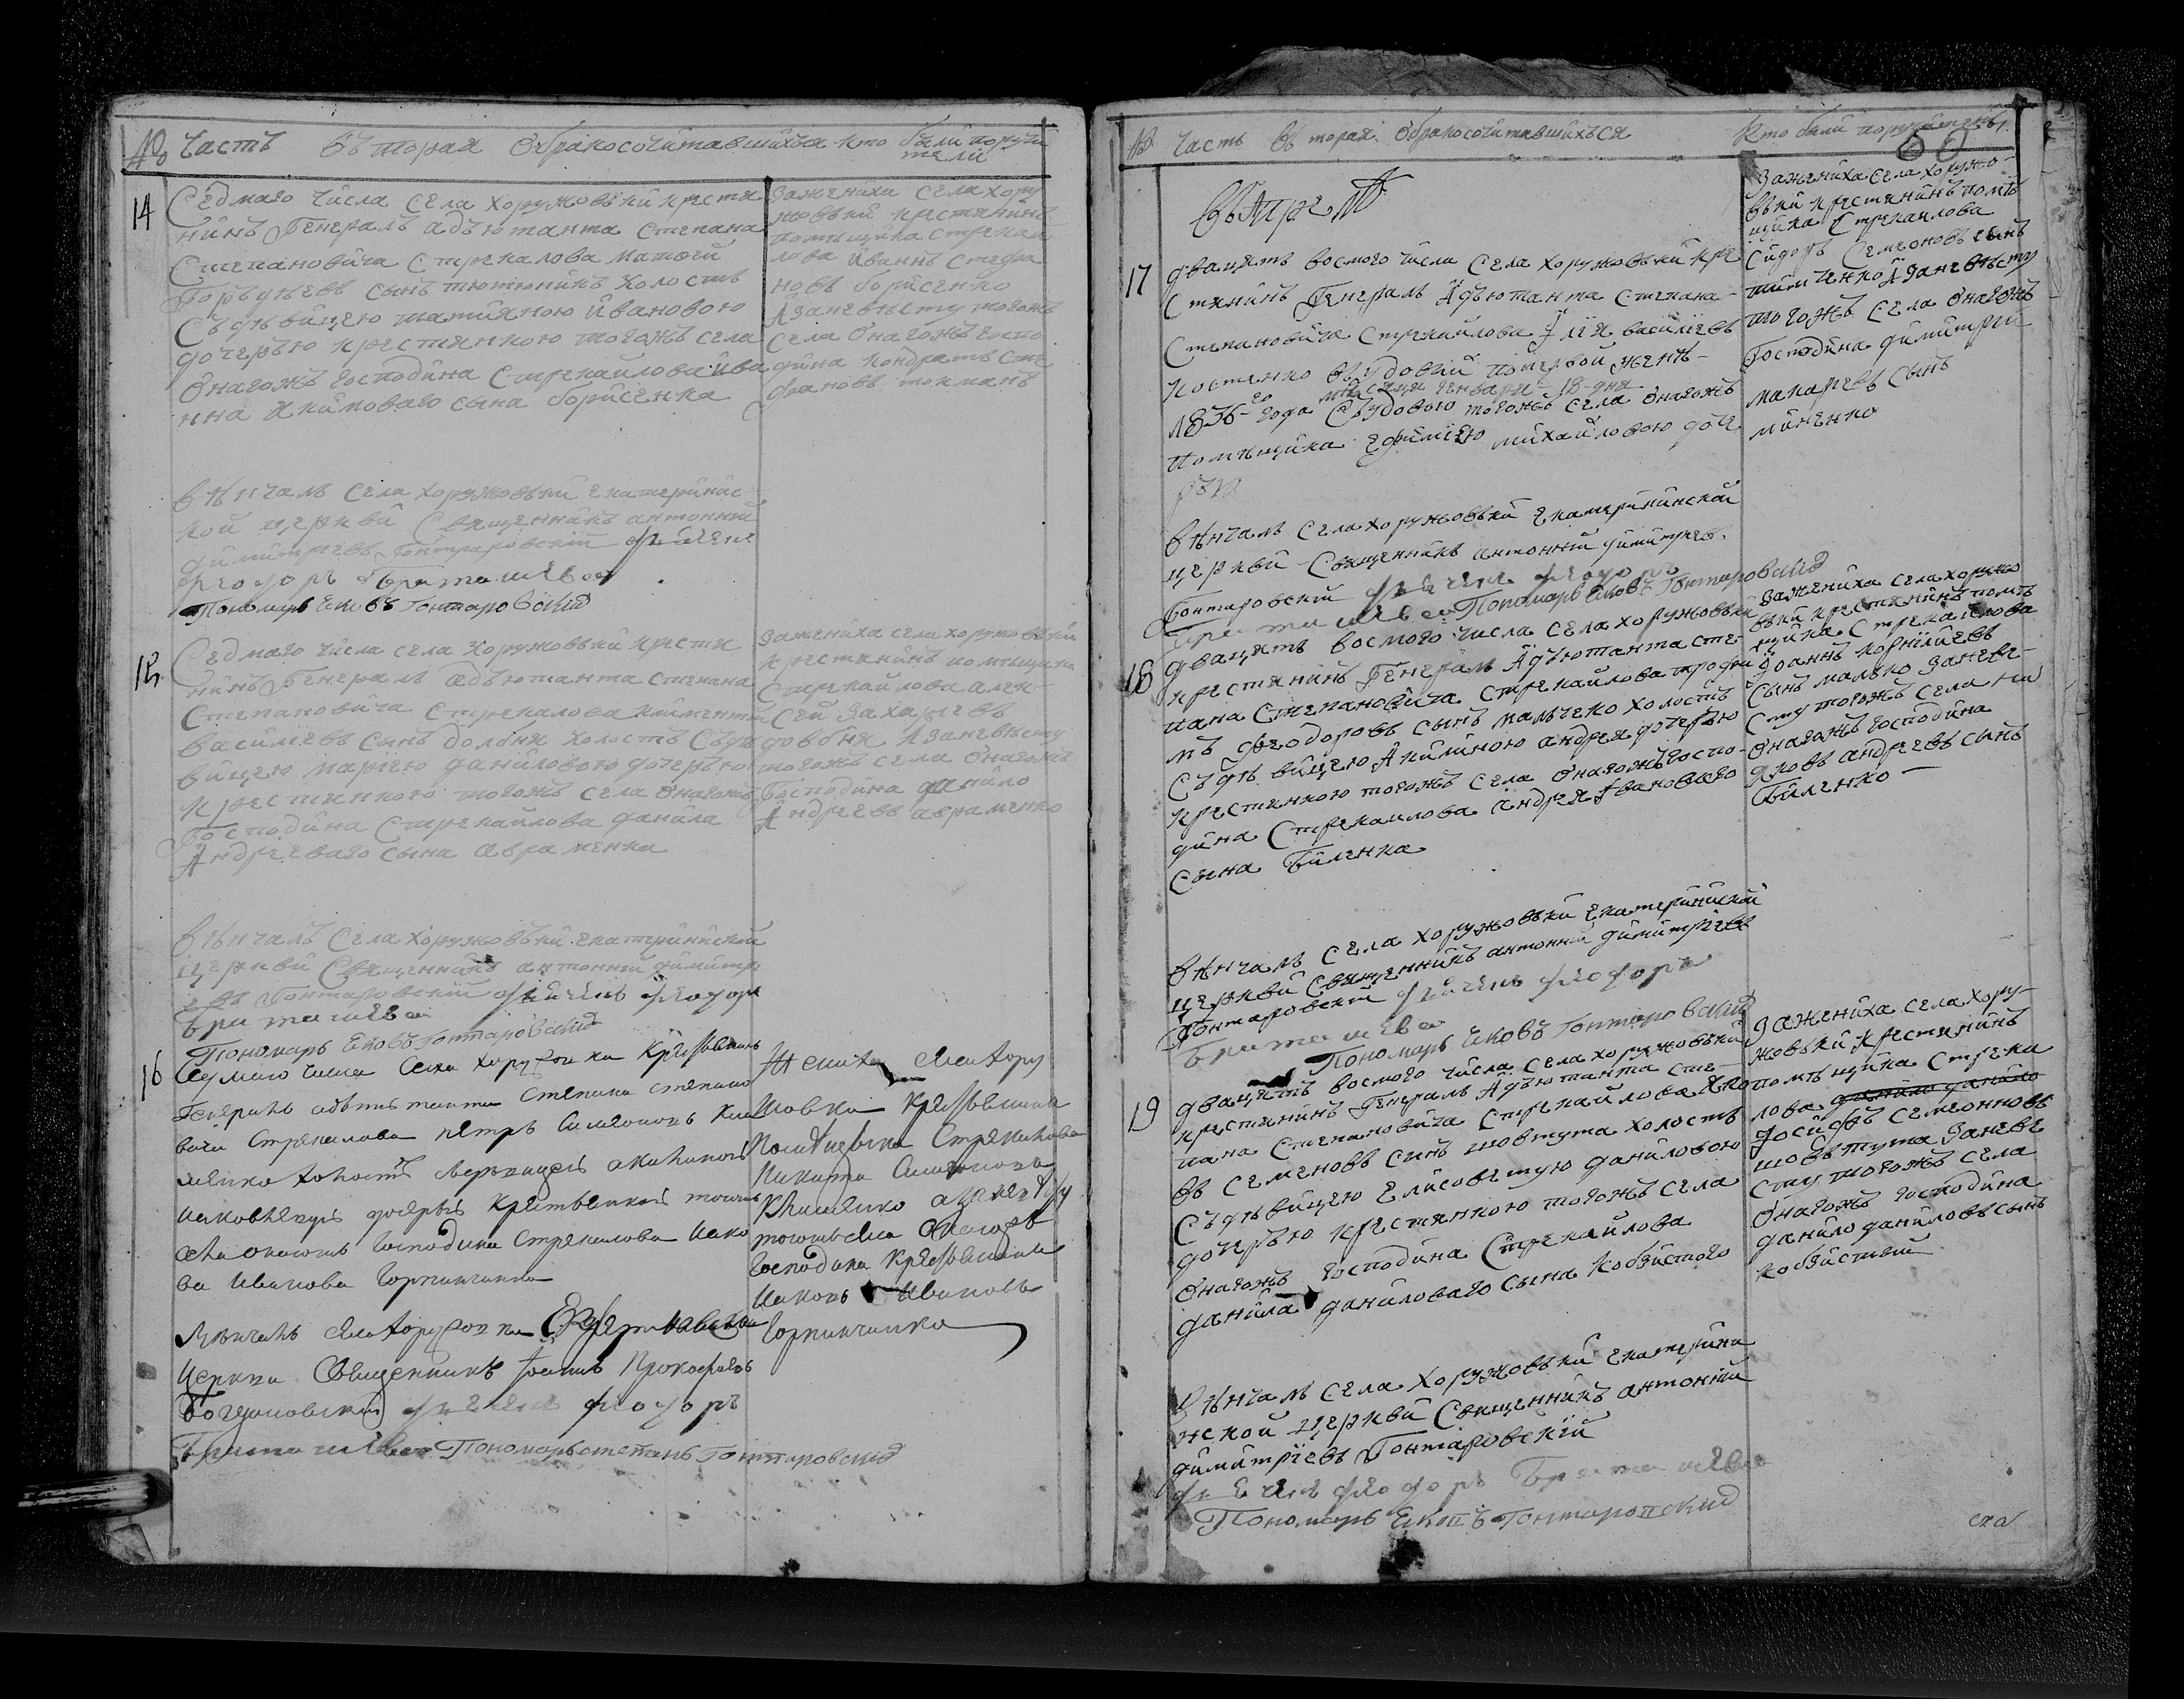 № Часть вторая обракосочитавшихъся кто были поручи
тели
14
Седмаго числа села хоружовьки крестя
нинъ Генералъ адъютанта степана
Степановича Стрекалова матфей
сынъ тютюникъ холостъ
Съ дѣвицею татияною ивановою
дочерью крестянкою тогожъ села
онагожъ господина Стрекайлова ива
нна Якимоваго сына борисенка
Зажениха села хору
жовьки крестянинъ
помѣщика стрекай
лова иваннъ
новъ борисенко
Азаневѣсту тогожъ
села онагожъ госпо
дина кондратъ сте
фановъ
вѣнчалъ Села хоружовьки екатеринис
кой церкви Священникъ антонии
димитриевъ Гонтаровский дячекъ
феодоръ Бриташева
Пономарь Яковъ Гонтаровский
15
Седмаго числа села хоружовьки крестя
нинъ Генералъ адъютанта степана
Степановича Стрекалова климентий
василиевъ сынъ довбня холостъ Съдѣ
вицею мариею даниловою дочерью
крестянкою тогожъ села онагожъ
Господина Стрекайлова данила
Андрееваго сына авраменка
зажениха села хоружовьки
крестянинъ помѣщика
Стрекайлова алек
сей захариевъ
довбня Азаневѣсту
тогожъ села онагожъ
Господина данило
Андреевъ авраменко
вѣнчалъ Села хоружовьки екатерининской
церкви Священникъ антонии димитри
евъ Гонтаровский дячекъ феодоръ
Бриташева
Пономарь Яковъ Гонтаровский
16
Седмаго числа села Хоружовки крестьянинъ
Генералъ адъютанта Степана степано
вича Стрекалова петръ Симеоновъ Кли
менко холостъ здевицею акилиною
Иаковлевою дочерью крестьянкою тогожъ
села онагожъ господина Стрекалова Иако
ва Иванова Горпинченка
Жениха села Хору
жовки крестьянинъ
помещика Стрекалова
Никита Симеоновъ
Клименко а заневѣсту
тогожъ села онагожъ
господина крестьянинъ
Иаковъ Ивановъ
Горпинченко
Венчалъ села Хоружовки Екатерининской
Церкви Священникъ Иоаннъ Прокофиевъ
Богдановский дячекъ феодоръ
Бриташева Пономарь степанъ Гонтаровский
№ Часть вторая обракосочитавшихъся кто были поручители
60
въ Апреле
17
двацять восмого числа Села хоружовьки кре
стянинъ Генералъ Адъютанта Степана
Степановича Стрекайлова Илия василиевъ
костенко въдовий попервой женѣ
мѣсяця генваря 18 дня
1836-го года Съвдовою тогожъ села онагожъ
помѣщика ефимиею михайловою доче
рью
Зажениха села хоружо
вьки крестянинъ помѣ
щика Стрекалова
Сидоръ Семеновъ сынъ
тимченко Азаневѣсту
тогожъ села онагожъ
Господина димитрий
макариевъ сынъ
миненко
вѣнчалъ села хоружовьки екатерининской
церкви Священникъ антонии димитриев.
Гонтаровский дячекъ феодоръ
Бриташева Пономарь Яковъ Гонтаровский
18
двацять восмого числа села хоружовьки
крестянинъ Генералъ Адъютанта сте
пана Степановича Стрекайлова трофи
мъ феодоровъ сынъ малченко холостъ
Съдѣвицею Акилиною андрея дочерью
крестянкою тогожъ села онагожъ госпо
дина Стрекалова андрея Ивановаго
сына Биленка
зажениха села хоружо
вьки крестянинъ помѣ
щика Стрекайлова
Иоаннъ корнилиевъ
сынъ малько Заневе
сту тогожъ села
онагожъ господина
яковъ андреевъ сынъ
Биленко
вѣнчалъ села хоружовьки екатерининской
церкви Священникъ антонии димитриевъ
Гонтаровский дячекъ феодоръ
Бриташева
Пономарь Яковъ Гонтаровский
19
двацять восмого числа Села хоружовьки
крестянинъ Генералъ Адъютанта сте
пана Степановича Стрекайлова Яко
въ семеновъ синъ шовтута холостъ
Съдѣвицею елисоветую даниловою
дочерью крестянкою тогожъ села
онагожъ господина Стрекайлова
данила даниловаго сына кобзистого
Зажениха села хору
жовьки крестянинъ
помѣщика Стрека
лова данило данило
Иосифъ семеонновъ
шовьтута Заневе
сту тогожъ села
онагожъ господина
данило даниловъ сынъ
кобзистый
Вѣнчалъ села хоружовьки екатерини
нской церкви Священникъ антоний
димитриевъ Гонтаровский
дячекъ феодоръ Бриташева
Пономарь Яковъ Гонтаровский